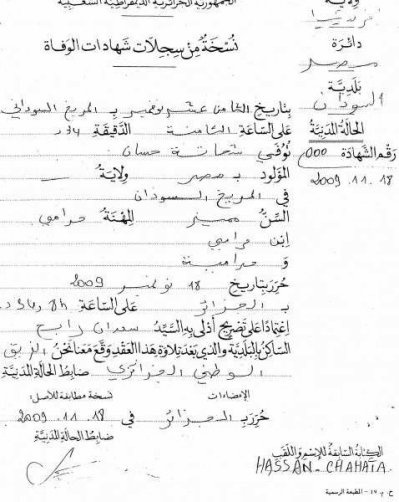 الجمهورية الجزائرية الديمقراطية الشعبية
ولاية
نسخة من سجلات شهادات الوفاة
دائرة
مصر
بلدية
السودان
الحالة المدنية
رقم الشهادة 000
2009.11.18
بتاريخ الثامن عشر نوفمبر بـ المريخ السوداني
على الساعة الثامنة الدقيقة 34 د
توفي شحاتة حسان
المولود بـ مصر ولاية
في المريخ السودان
السن مميز المهنة حرامي
ابن حرامي
و حرامية
حرر بتاريخ 18 نوفمبر 2009
بـ الجزائر على الساعة 8h و 34 د
اعتمادا على تصريح أدلى به السيد سعدان رابح
الساكن بالبلدية والذي بعد تلاوة هذا العقد وقع معنا نحن الفريق
الوطني الجزائري ضابط الحالة المدنية
الإمضاءات
نسخة مطابقة للأصل
حرر بـ الجزائر في 2009.11.18
ضابط الحالة المدنية
الكتابة السابقة للإسم واللقب
HASSAN - CHAHATA
ج م 17 - المطبعة الرسمية